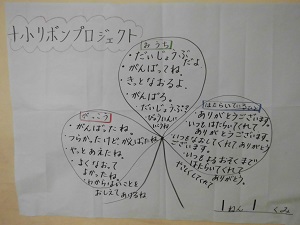 ナイトリボンプロジェクト
おうち
・だいじょうぶだよ
・がんばってね。
・きっとなおるよ。
・がんばろ。
だいじょうぶ?
がっこう
・がんばったね。
・つらかったけど、がんばたね
・やっとあえたね。
・よくなおって
よかったね。
・わからないことを
おしえてあげるね
はたらいている人
ありがとうございます。
・いつもはたらいてくれて
ありがとうございます。
・いつもなおしてくれてありがとう
ございます。
・いつもよるおそくまで
はたらいてくれて
ありがとう。
1ねん1くみ